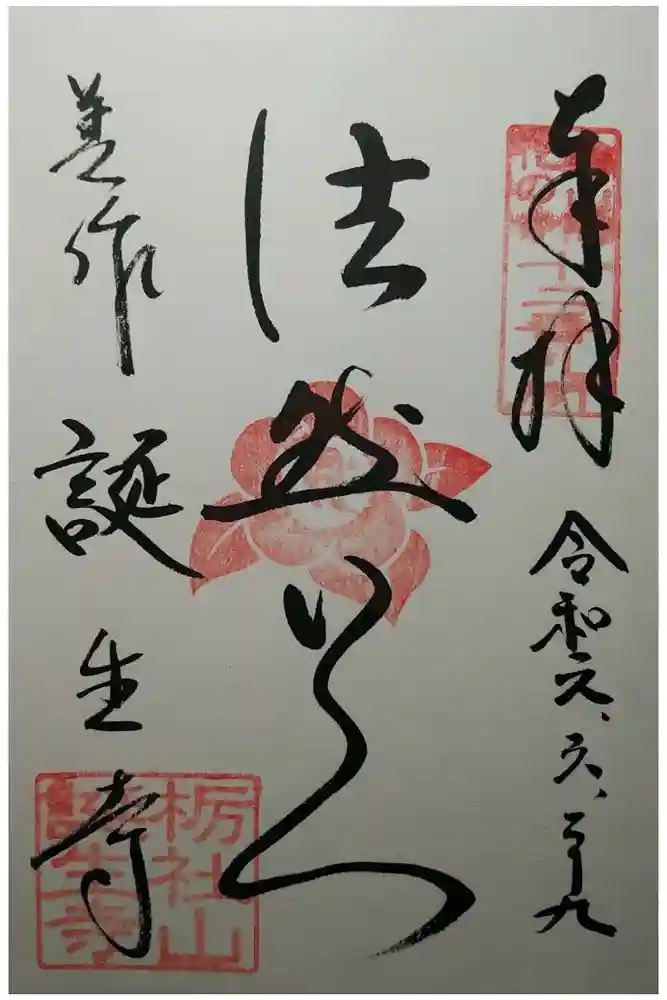 奉拝
令和六、六、二十九
法然上人
美作
誕生寺
栃社山
誕生寺